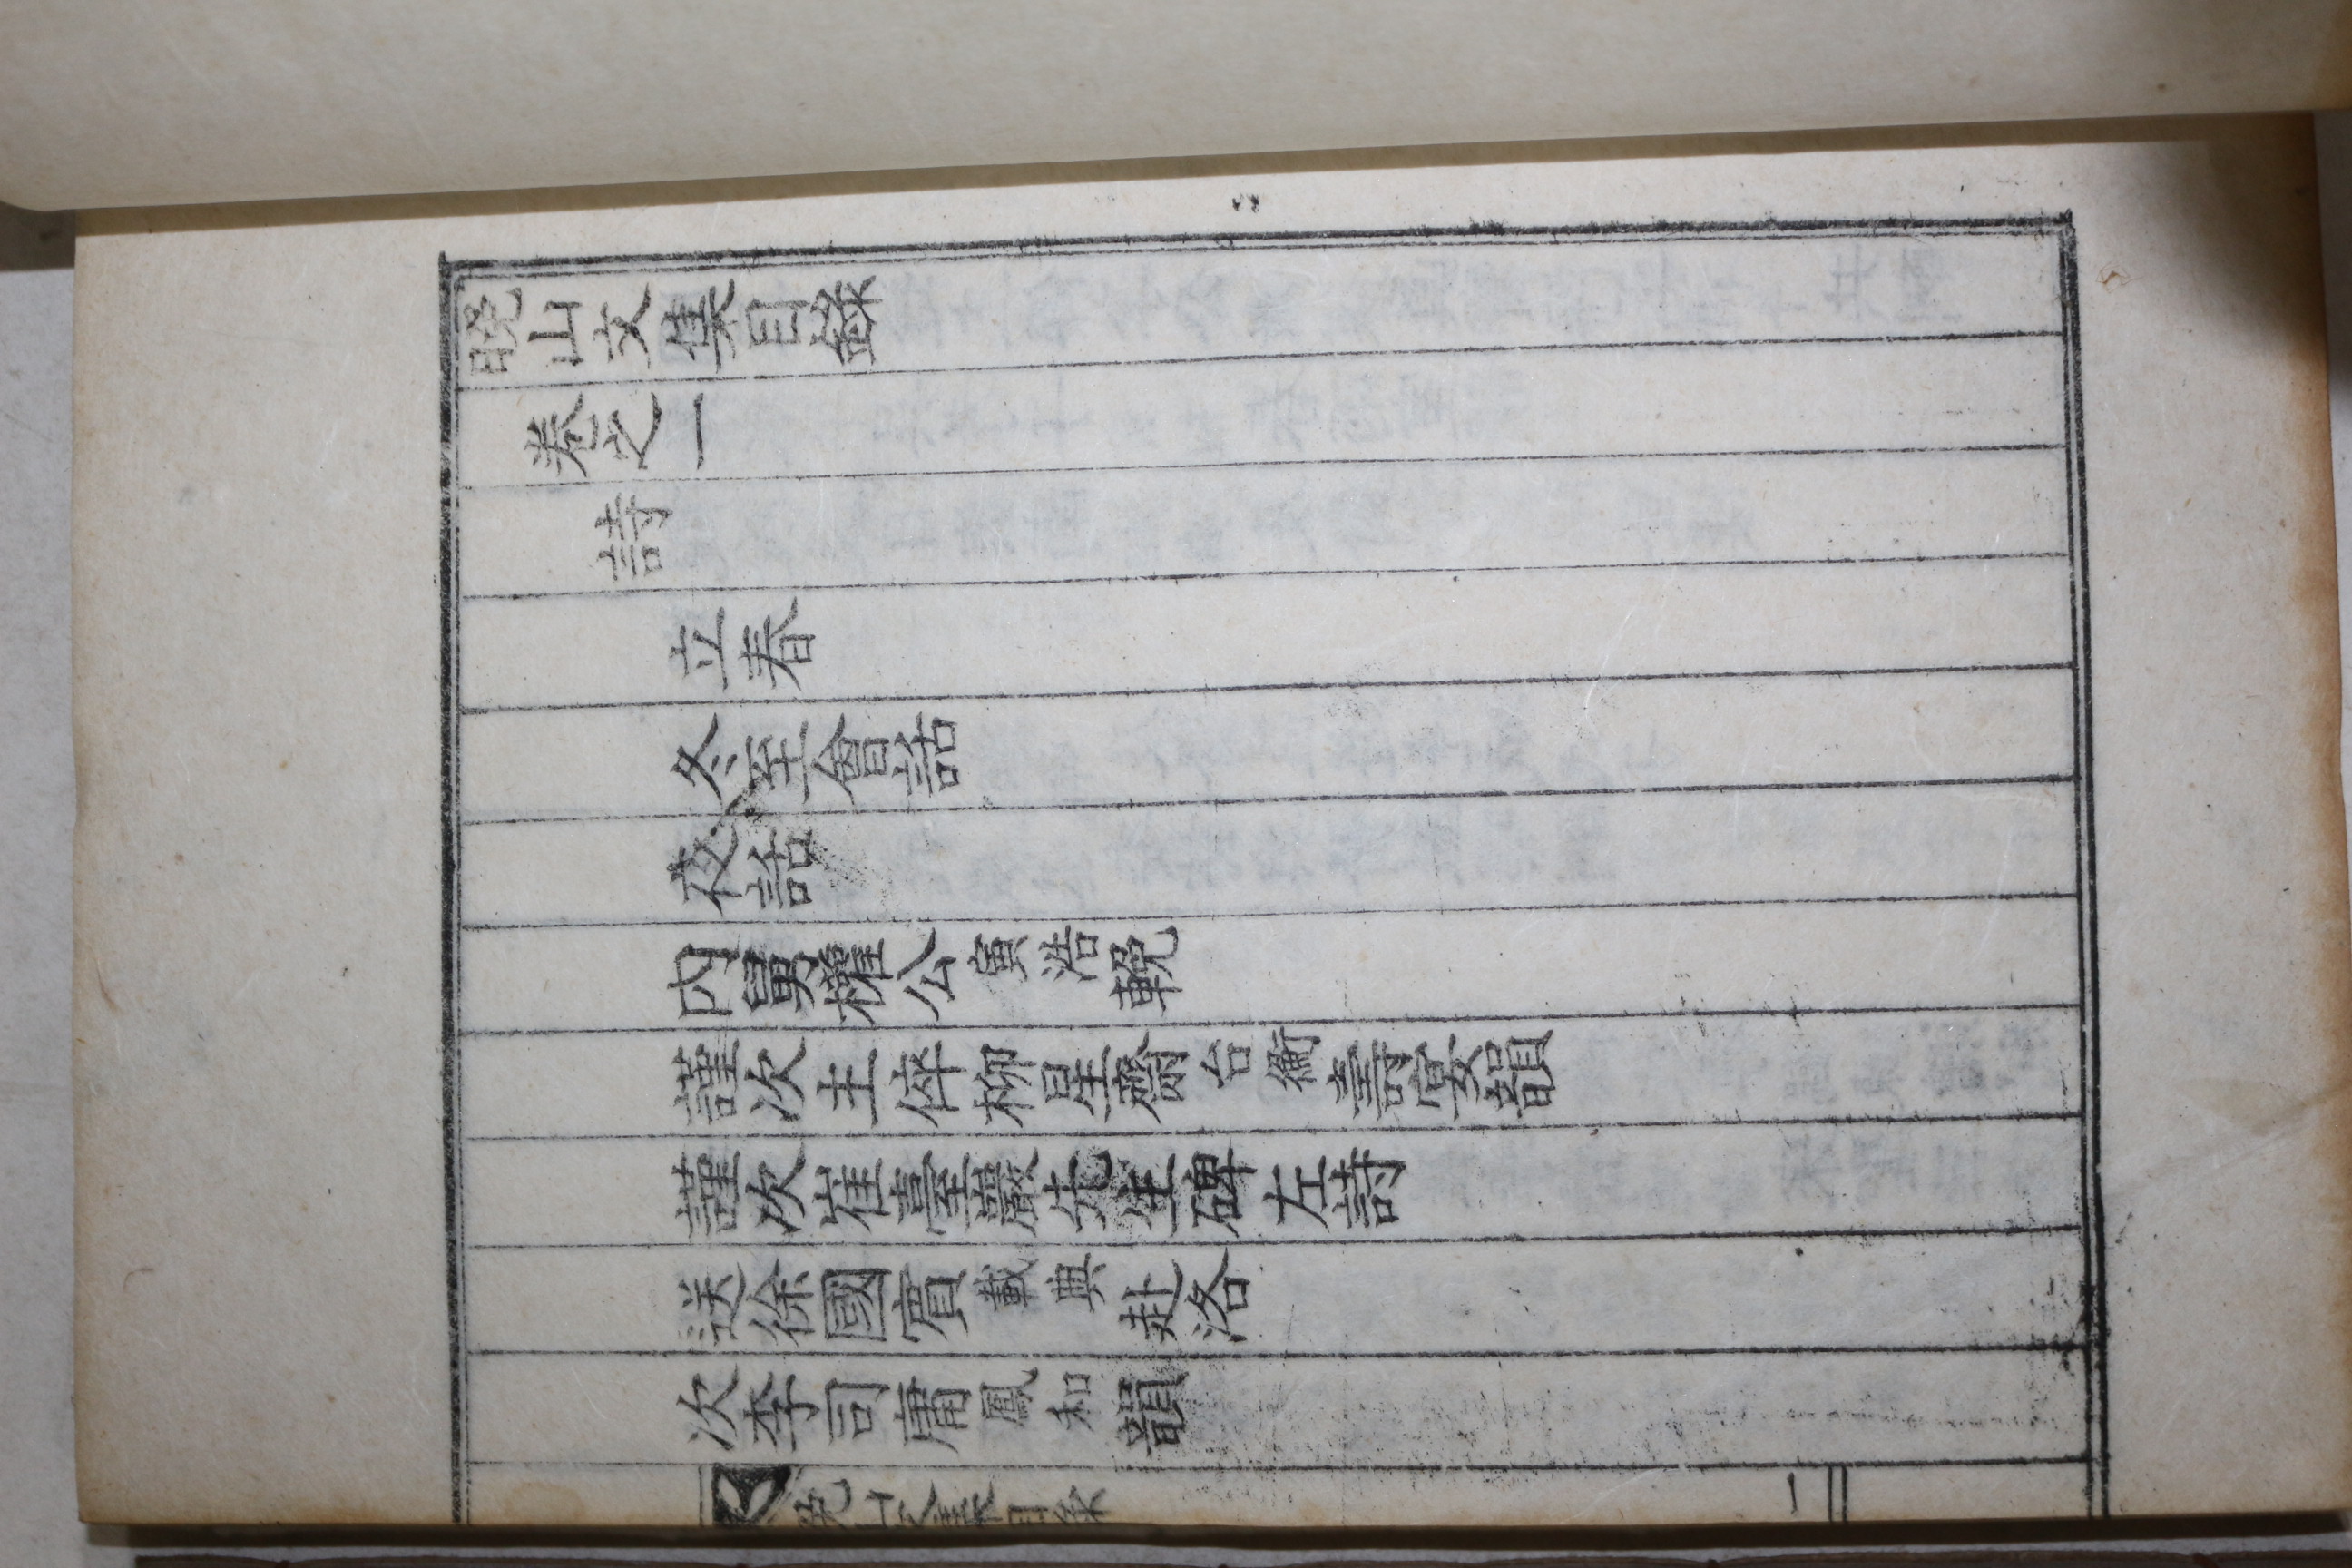 晩山文集目錄
卷之一
詩
立春
冬至會話
夜話
內舅權公寅浩輓
謹次主倅柳星齋台衡壽宴韻
謹次崔臺巖先生碑左詩
送徐國賓載典赴洛
次李司庸鳳和韻
晩山文集目錄 一